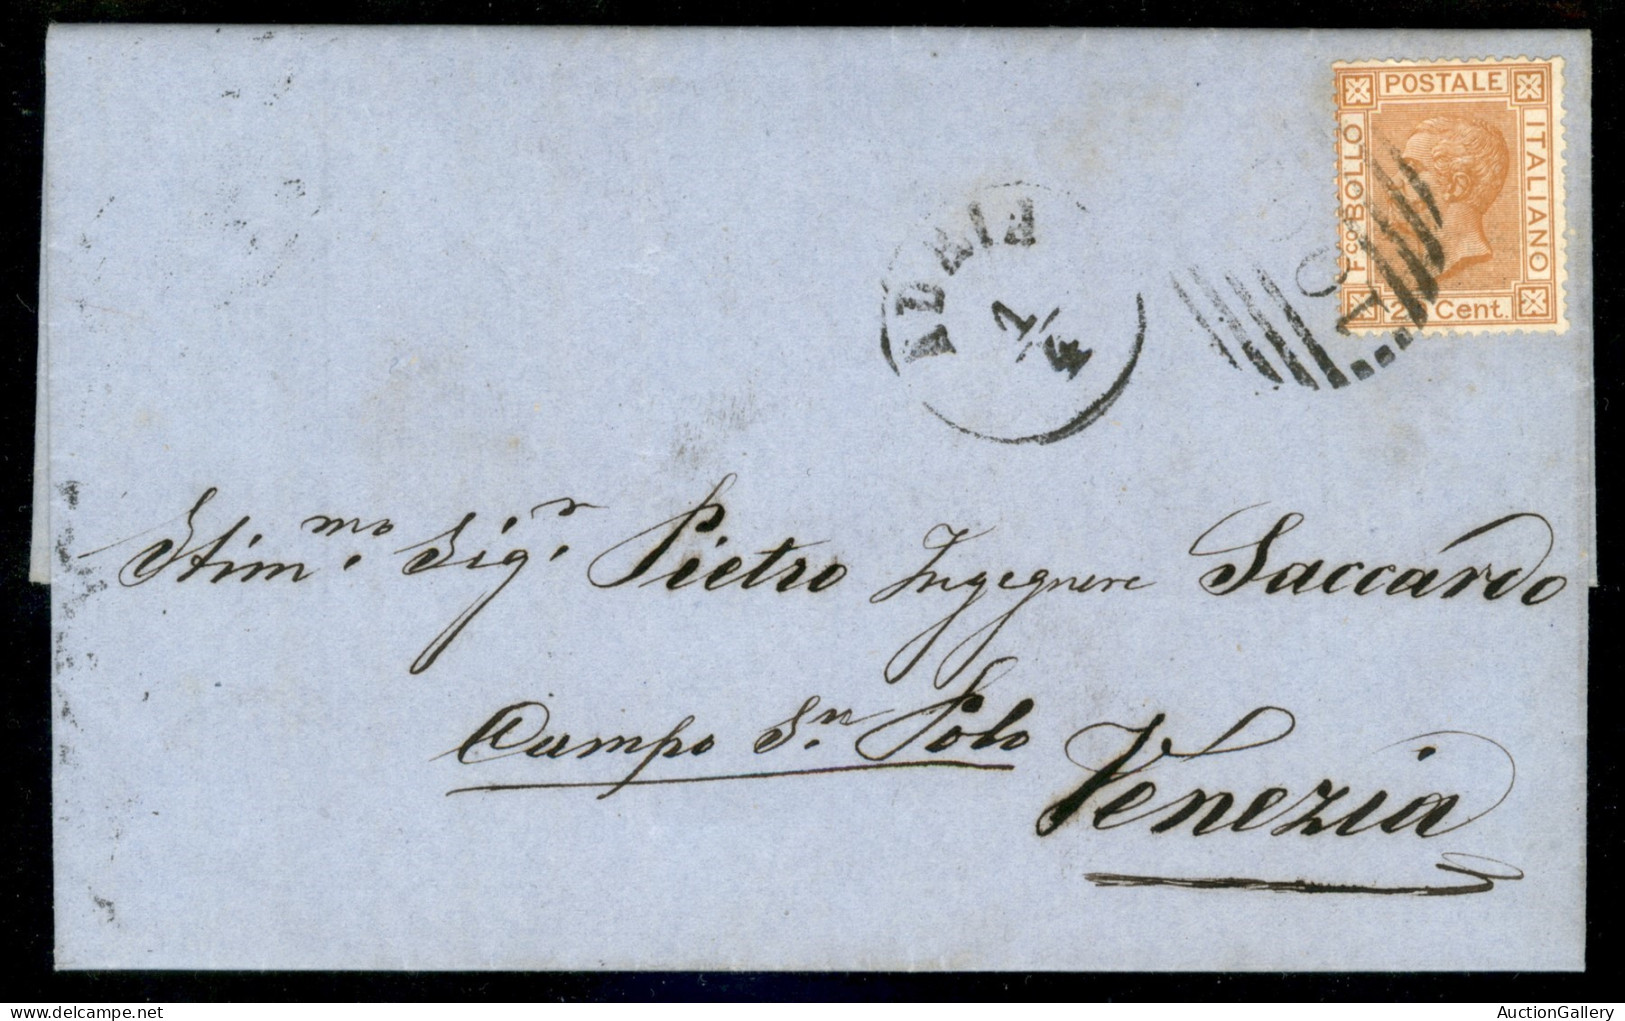 POSTALE
Fco BOLLO
ITALIANO
Cent.
ADRIA
1/4
Stim.mo Sig.r Pietro Ingegnere Saccardo
Campo Sn. Polo
Venezia
delcampe.net
AuctionGallery